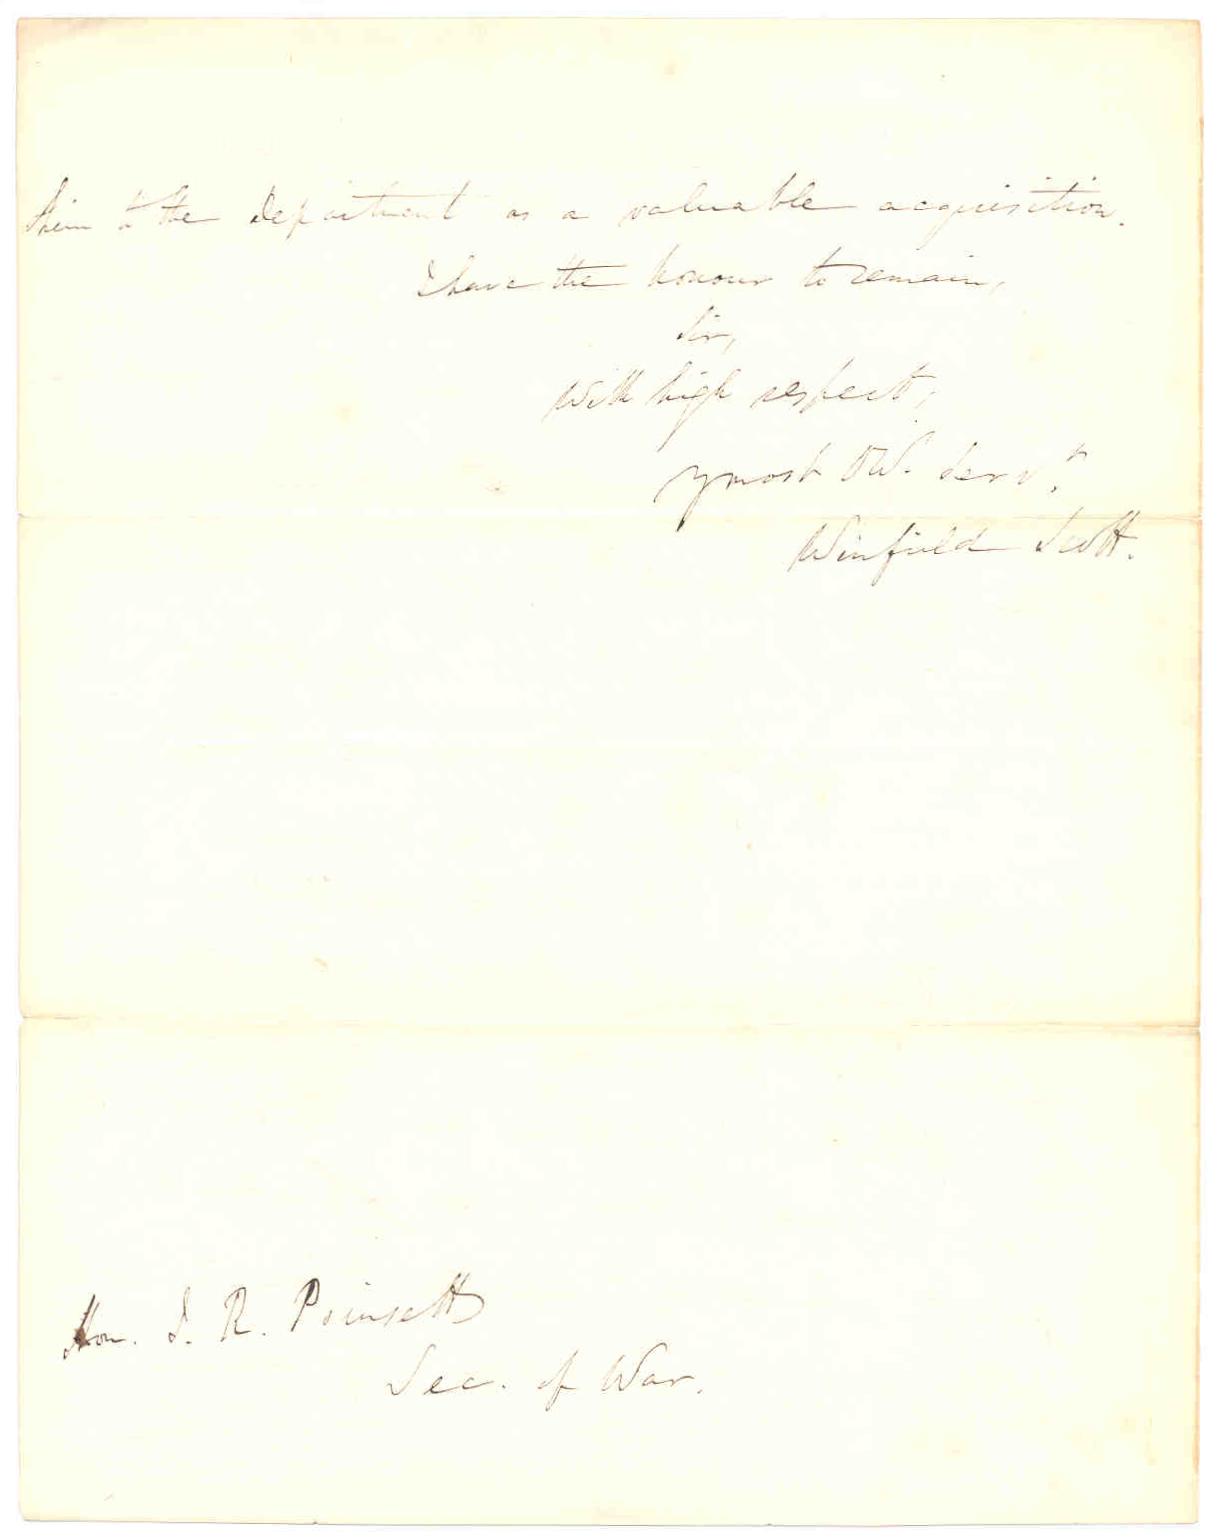 him to the Department as a valuable acquisition.
I have the honour to remain,
Sir,
With high respect,
Yr most Ob. Servt.
Winfield Scott.
Hon. J. R. Poinsett
Sec. of War.